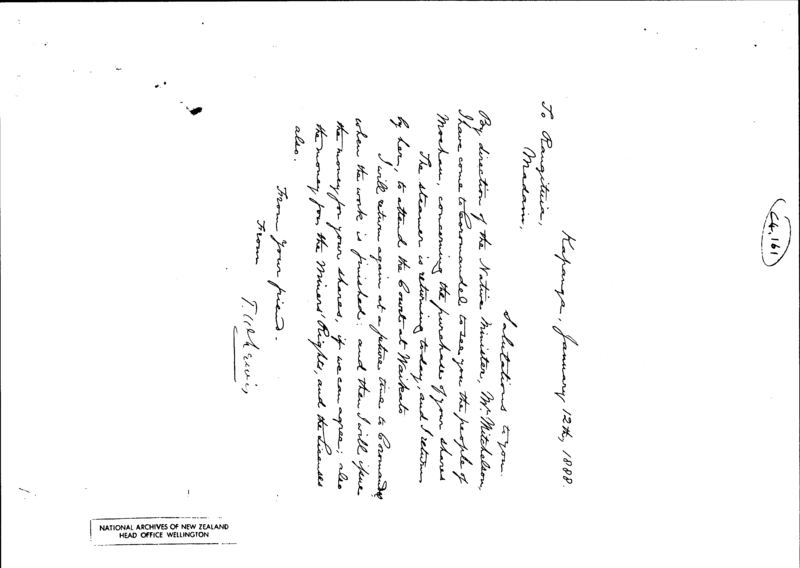 Kapanga, January 12th, 1888.
To Rangituia,
Madam,
Salutations to you.
By direction of the Native Minister, Mr. Mitchelson,
I have come to Coromandel to see you the people of
Moehau, concerning the purchase of your shares
The steamer is returning to day, and I return
by her, to attend the Court at Waikato
I will return again at a future time to Coromandel
when the work is finished: and then I will give
the money for your shares, if we can agree; also
the money for the Miners' Rights, and the Licenses
also.
From your friend.
From
64.161
NATIONAL ARCHIVES OF NEW ZEALAND
HEAD OFFICE WELLINGTON